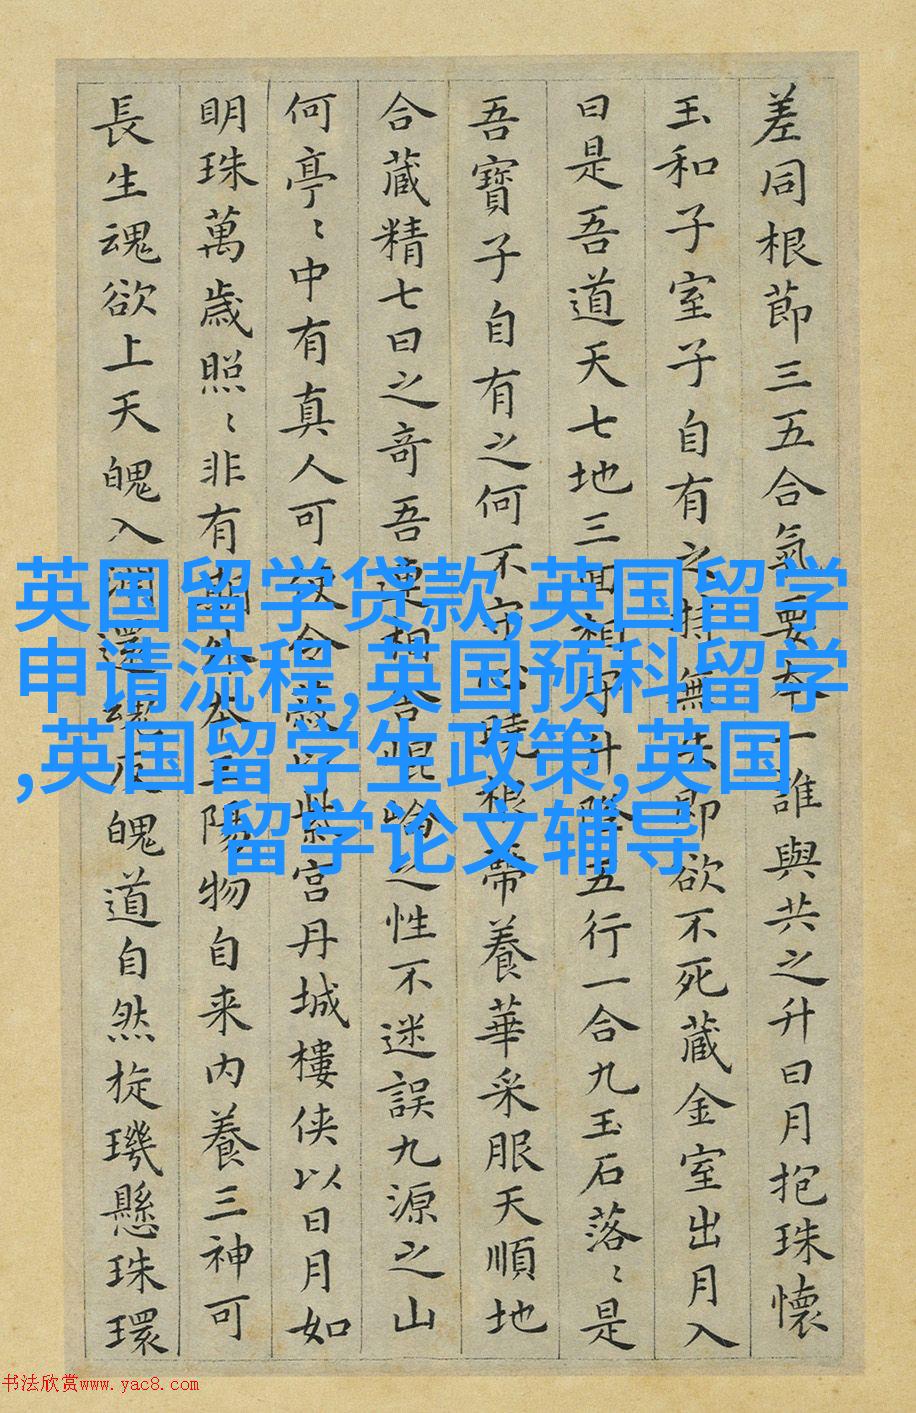 差同根節三五合氣要本一誰與共之升日月抱珠懷
玉和子室子自有之持無失即欲不死藏金室出月入
日是吾道天七地三回相守升降五行一合九玉石落〻是
吾寶子自有之何不守心曉根蔕養華采服天順地
合藏精七日之奇吾連相合崐崘之性不迷誤九源之山
何亭〻中有真人可使令蔽以紫宮丹城樓俠以日月如
明珠萬歲照〻非有期外本三陽物自来内養三神可
長生魂欲上天魄入淵還魂反魄道自然旋璣懸珠環
英国留学贷款,英国留学
申请流程,英国预科留学
,英国留学生政策,英国
留学论文辅导
书法欣赏www.yac8.com